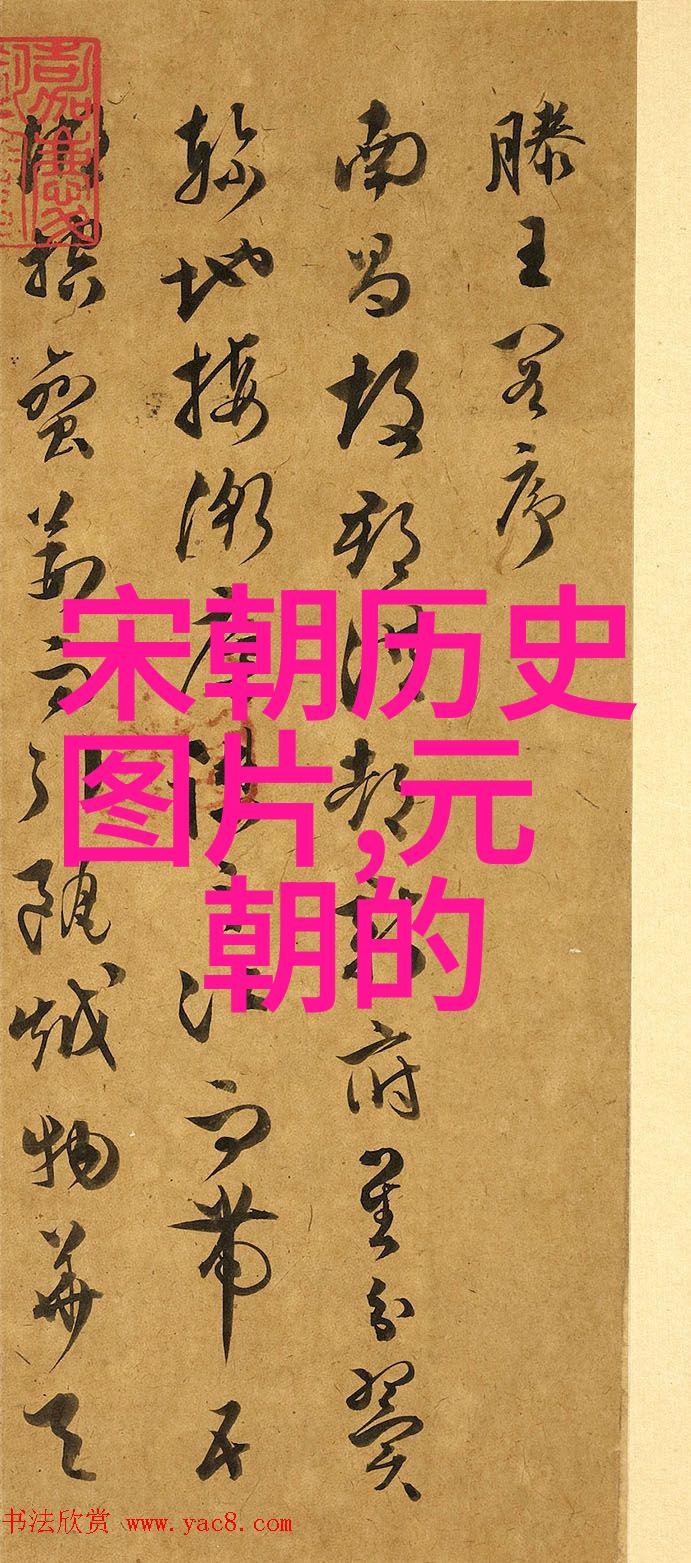 滕王閣序
南昌故郡洪都新府星分翼
軫地接衡廬襟三江而帶五
湖控蠻荊而引甌越物華天
宋朝历史
图片,元
朝的
书法欣赏 www.yac8.com